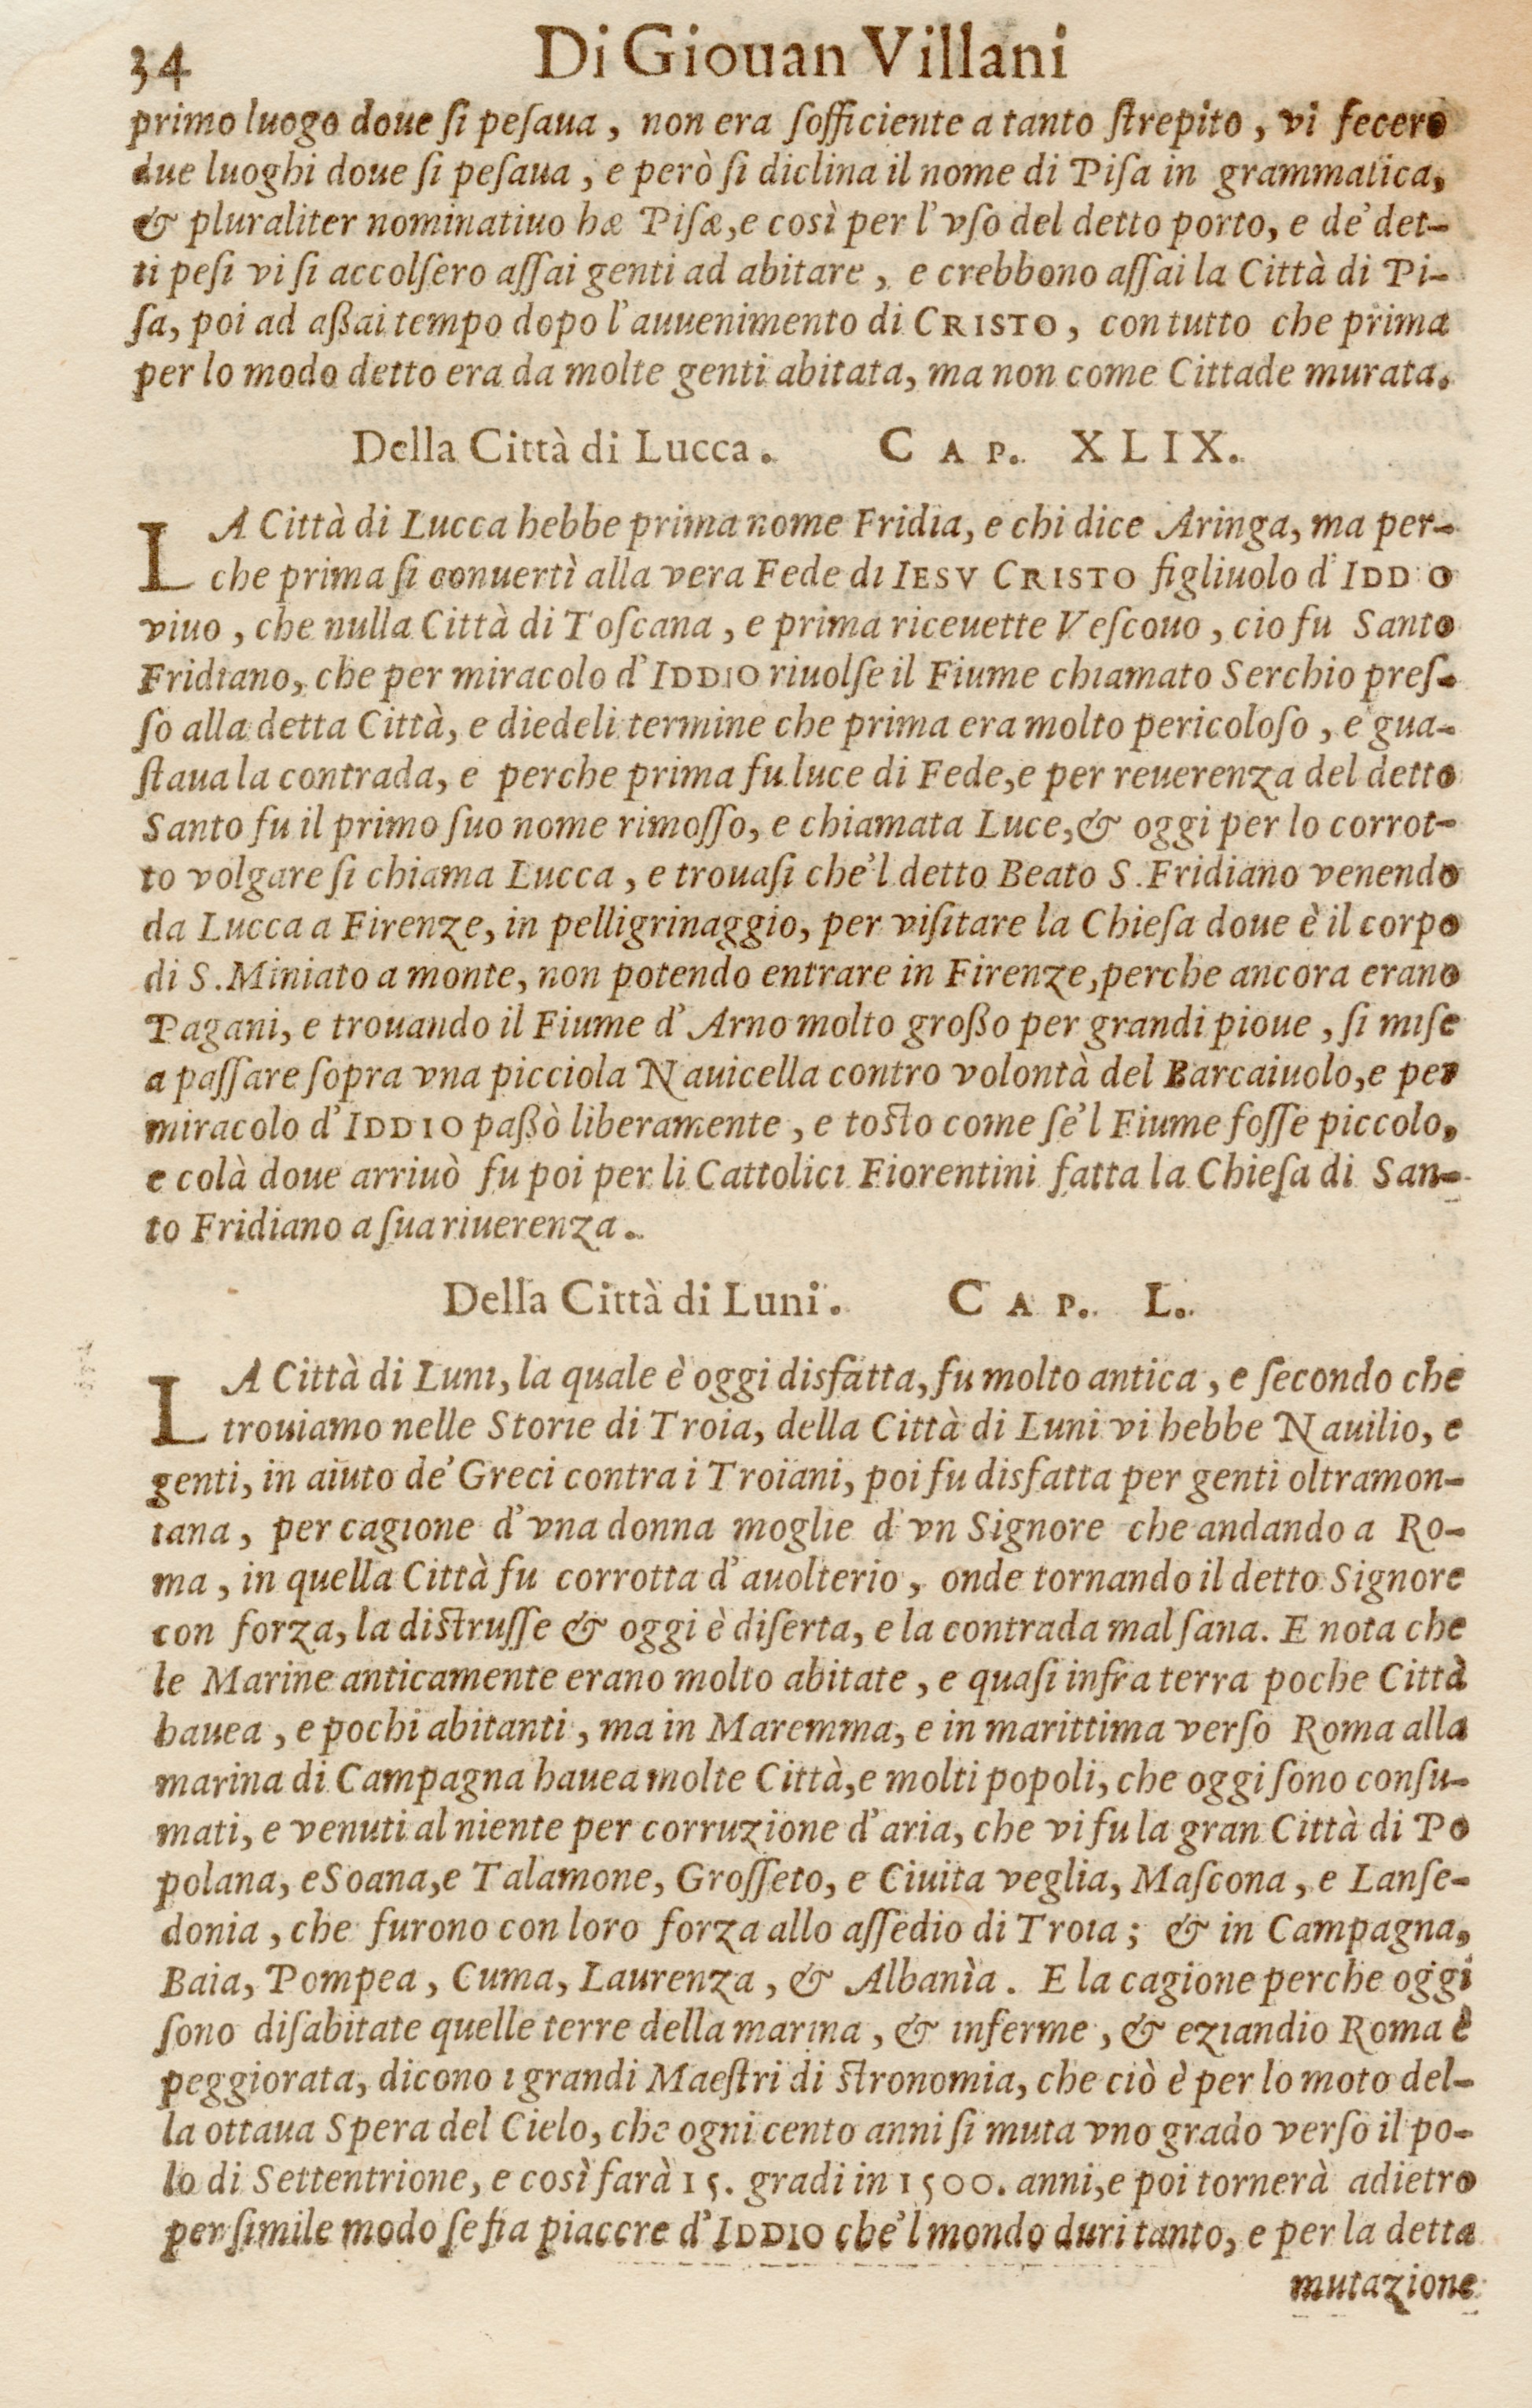 34 Di Giouan Villani
primo luogo doue ſi peſaua, non era ſofficiente a tanto ſtrepito, vi fecero
due luoghi doue ſi peſaua, e però ſi diclina il nome di Piſa in grammatica,
& pluraliter nominatiuo hæ Piſæ, e così per l'vſo del detto porto, e de' det-
ti peſi vi ſi accolſero aſſai genti ad abitare, e crebbono aſſai la Città di Pi-
ſa, poi ad aßai tempo dopo l'auuenimento di CRISTO, con tutto che prima
per lo modo detto era da molte genti abitata, ma non come Cittade murata.
Della Città di Lucca. CAP. XLIX.
LA Città di Lucca hebbe prima nome Fridia, e chi dice Aringa, ma per-
che prima ſi conuertì alla vera Fede di IESV CRISTO figliuolo d'IDDIO
viuo, che nulla Città di Toſcana, e prima riceuette Veſcouo, cio fu Santo
Fridiano, che per miracolo d'IDDIO riuolſe il Fiume chiamato Serchio preſ-
ſo alla detta Città, e diedeli termine che prima era molto pericoloſo, e gua-
ſtaua la contrada, e perche prima fu luce di Fede, e per reuerenza del detto
Santo fu il primo ſuo nome rimoſſo, e chiamata Luce, & oggi per lo corrot-
to volgare ſi chiama Lucca, e trouaſi che'l detto Beato S. Fridiano venendo
da Lucca a Firenze, in pelligrinaggio, per viſitare la Chieſa doue è il corpo
di S. Miniato a monte, non potendo entrare in Firenze, perche ancora erano
Pagani, e trouando il Fiume d'Arno molto großo per grandi pioue, ſi miſe
a paſſare ſopra vna picciola Nauicella contro volontà del Barcaiuolo, e per
miracolo d'IDDIO paßò liberamente, e toſto come ſe'l Fiume foſſe piccolo,
e colà doue arriuò fu poi per li Cattolici Fiorentini fatta la Chieſa di San-
to Fridiano a ſua riuerenza.
Della Città di Luni. CAP. L.
LA Città di Luni, la quale è oggi disfatta, fu molto antica, e ſecondo che
trouiamo nelle Storie di Troia, della Città di Luni vi hebbe Nauilio, e
genti, in aiuto de' Greci contra i Troiani, poi fu disfatta per genti oltramon-
tana, per cagione d'vna donna moglie d'vn Signore che andando a Ro-
ma, in quella Città fu corrotta d'auolterio, onde tornando il detto Signore
con forza, la diſtruſſe & oggi è diſerta, e la contrada mal ſana. E nota che
le Marine anticamente erano molto abitate, e quaſi infra terra poche Città
hauea, e pochi abitanti, ma in Maremma, e in marittima verſo Roma alla
marina di Campagna hauea molte Città, e molti popoli, che oggi ſono conſu-
mati, e venuti al niente per corruzione d'aria, che vi fu la gran Città di Po
polana, e Soana, e Talamone, Groſſeto, e Ciuita veglia, Maſcona, e Lanſe-
donia, che furono con loro forza allo aſſedio di Troia; & in Campagna,
Baia, Pompea, Cuma, Laurenza, & Albanìa. E la cagione perche oggi
ſono diſabitate quelle terre della marina, & inferme, & eziandio Roma è
peggiorata, dicono i grandi Maeſtri di ſtronomia, che ciò è per lo moto del-
la ottaua Spera del Cielo, che ogni cento anni ſi muta vno grado verſo il po-
lo di Settentrione, e così farà 15. gradi in 1500. anni, e poi tornerà adietro
per ſimile modo ſe fia piacere d'IDDIO che'l mondo duri tanto, e per la detta
mutazione